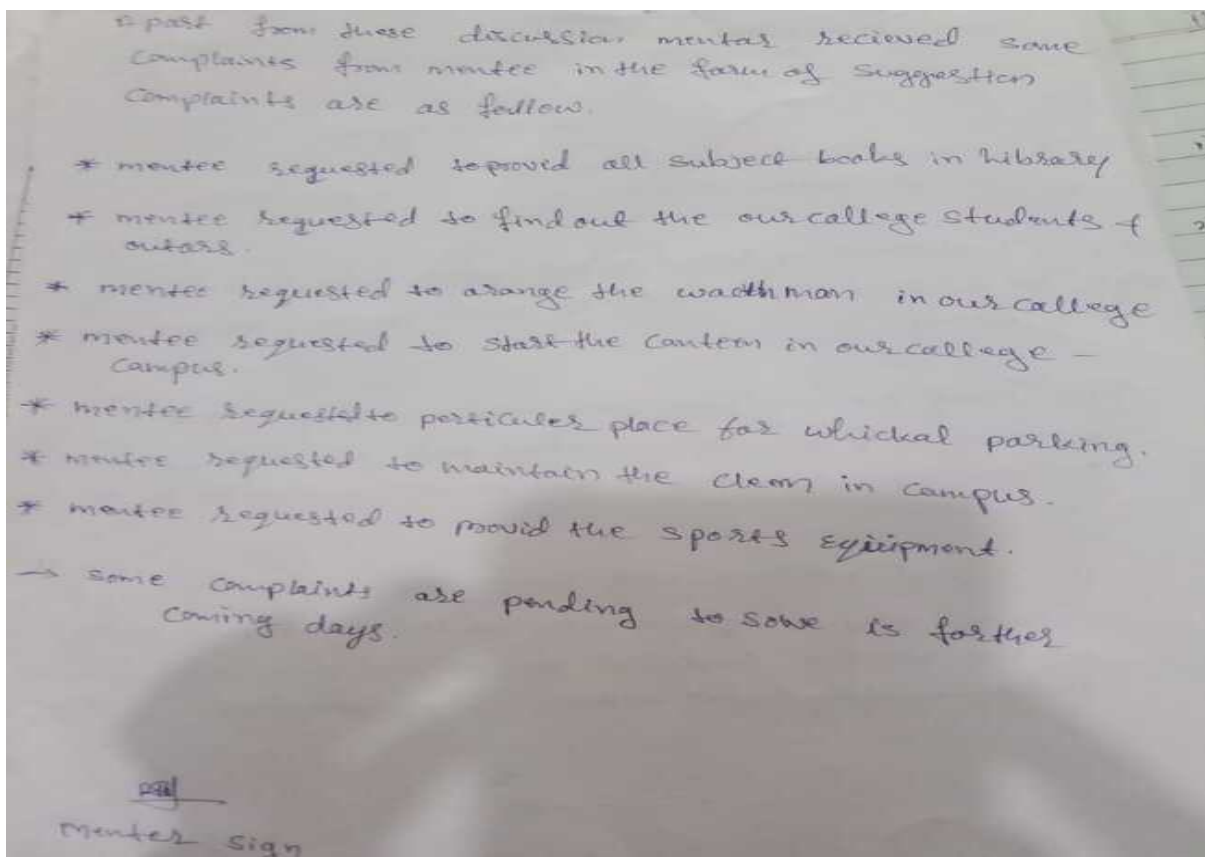 apart from these discussion mentor recieved some
complaints from mentee in the form of suggestion
complaints are as follow.
* mentee requested to provid all subject books in Library
* mentee requested to find out the our college students &
outars.
* mentee requested to arange the wacthman in our college
* mentee requested to start the canteen in our college -
campus.
* mentee requested to perticuler place for whickal parking.
* mentee requested to maintain the clean in campus.
* mentee requested to provid the sports Equipment.
→ some complaints are pending to solve is farther
coming days.
menter sign